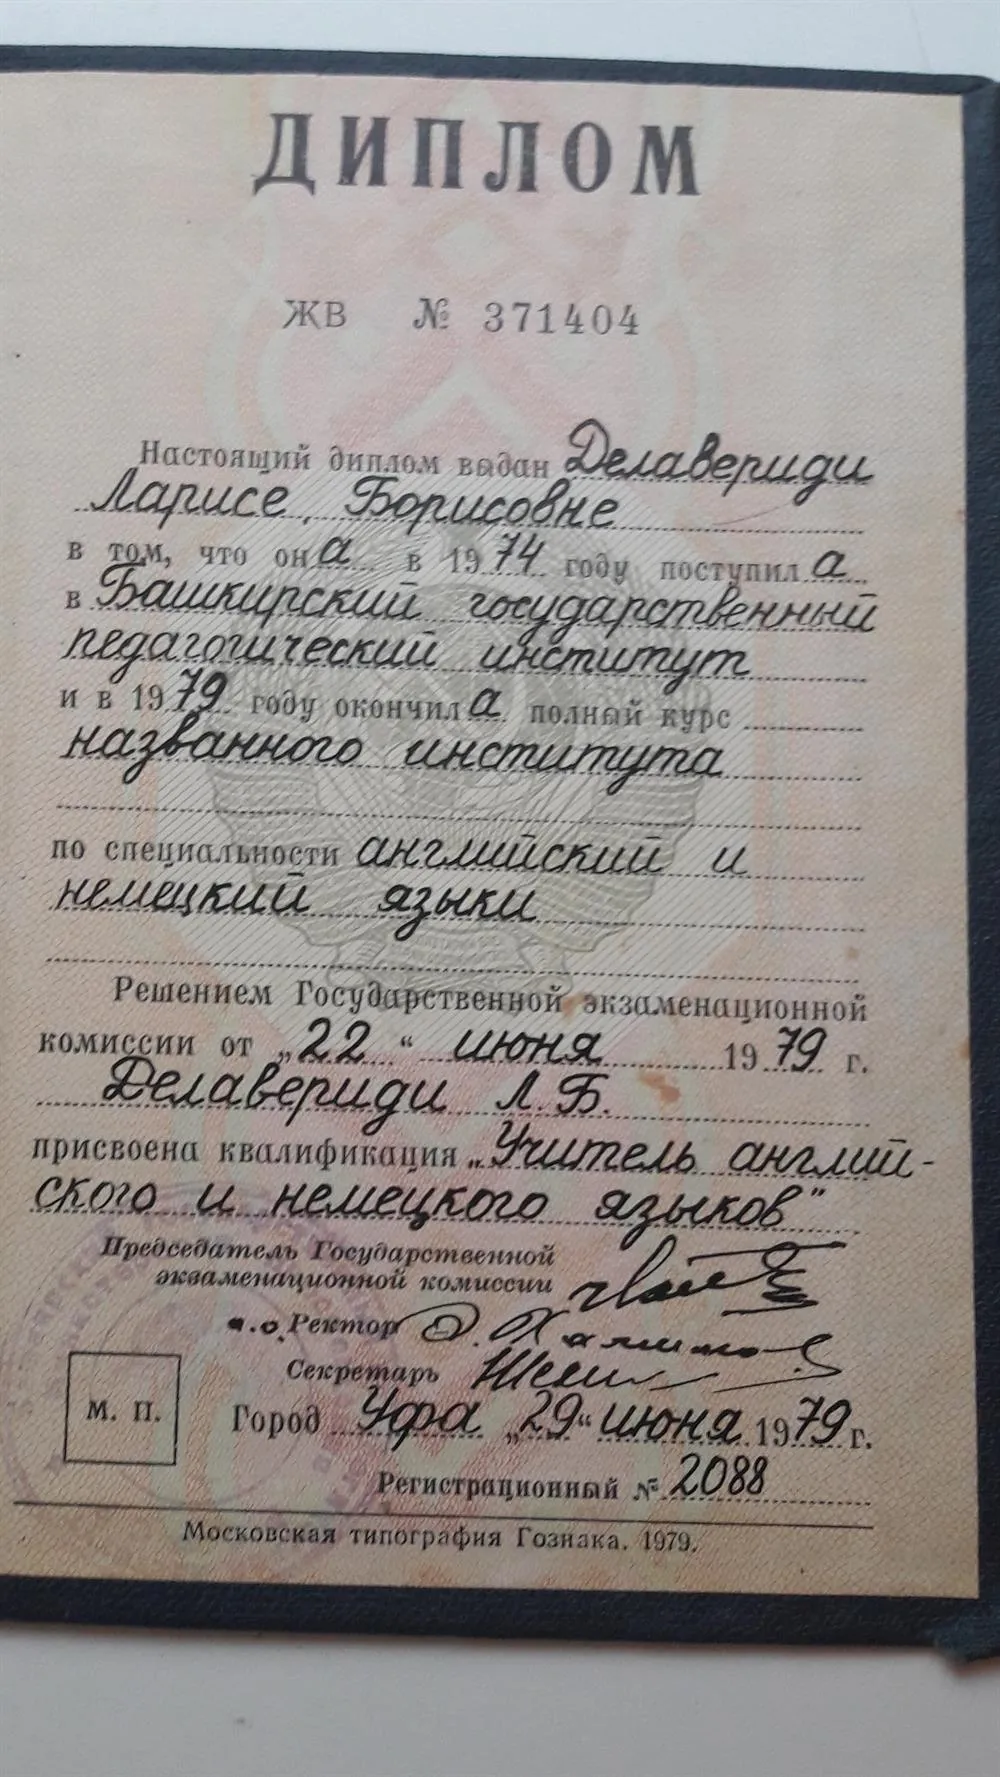 ДИПЛОМ
ЖВ № 371404
Настоящий диплом выдан Делавериди
Ларисе Борисовне
в том, что она в 1974 году поступила
в Башкирский государственный
педагогический институт
и в 1979 году окончила полный курс
названного института
по специальности английский и
немецкий языки
Решением Государственной экзаменационной
комиссии от „22“ июня 1979 г.
Делавериди Л.Б.
присвоена квалификация „Учитель англий-
ского и немецкого языков"
Председатель Государственной
экзаменационной комиссии
и.о. Ректор
Секретарь
М. П.
Город Уфа „29“ июня 1979 г.
Регистрационный № 2088
Московская типография Гознака. 1979.